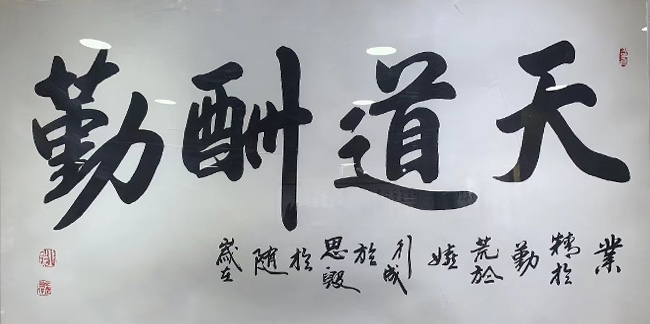 天道酬勤
業精於勤荒於嬉行成於思毀於隨歲在